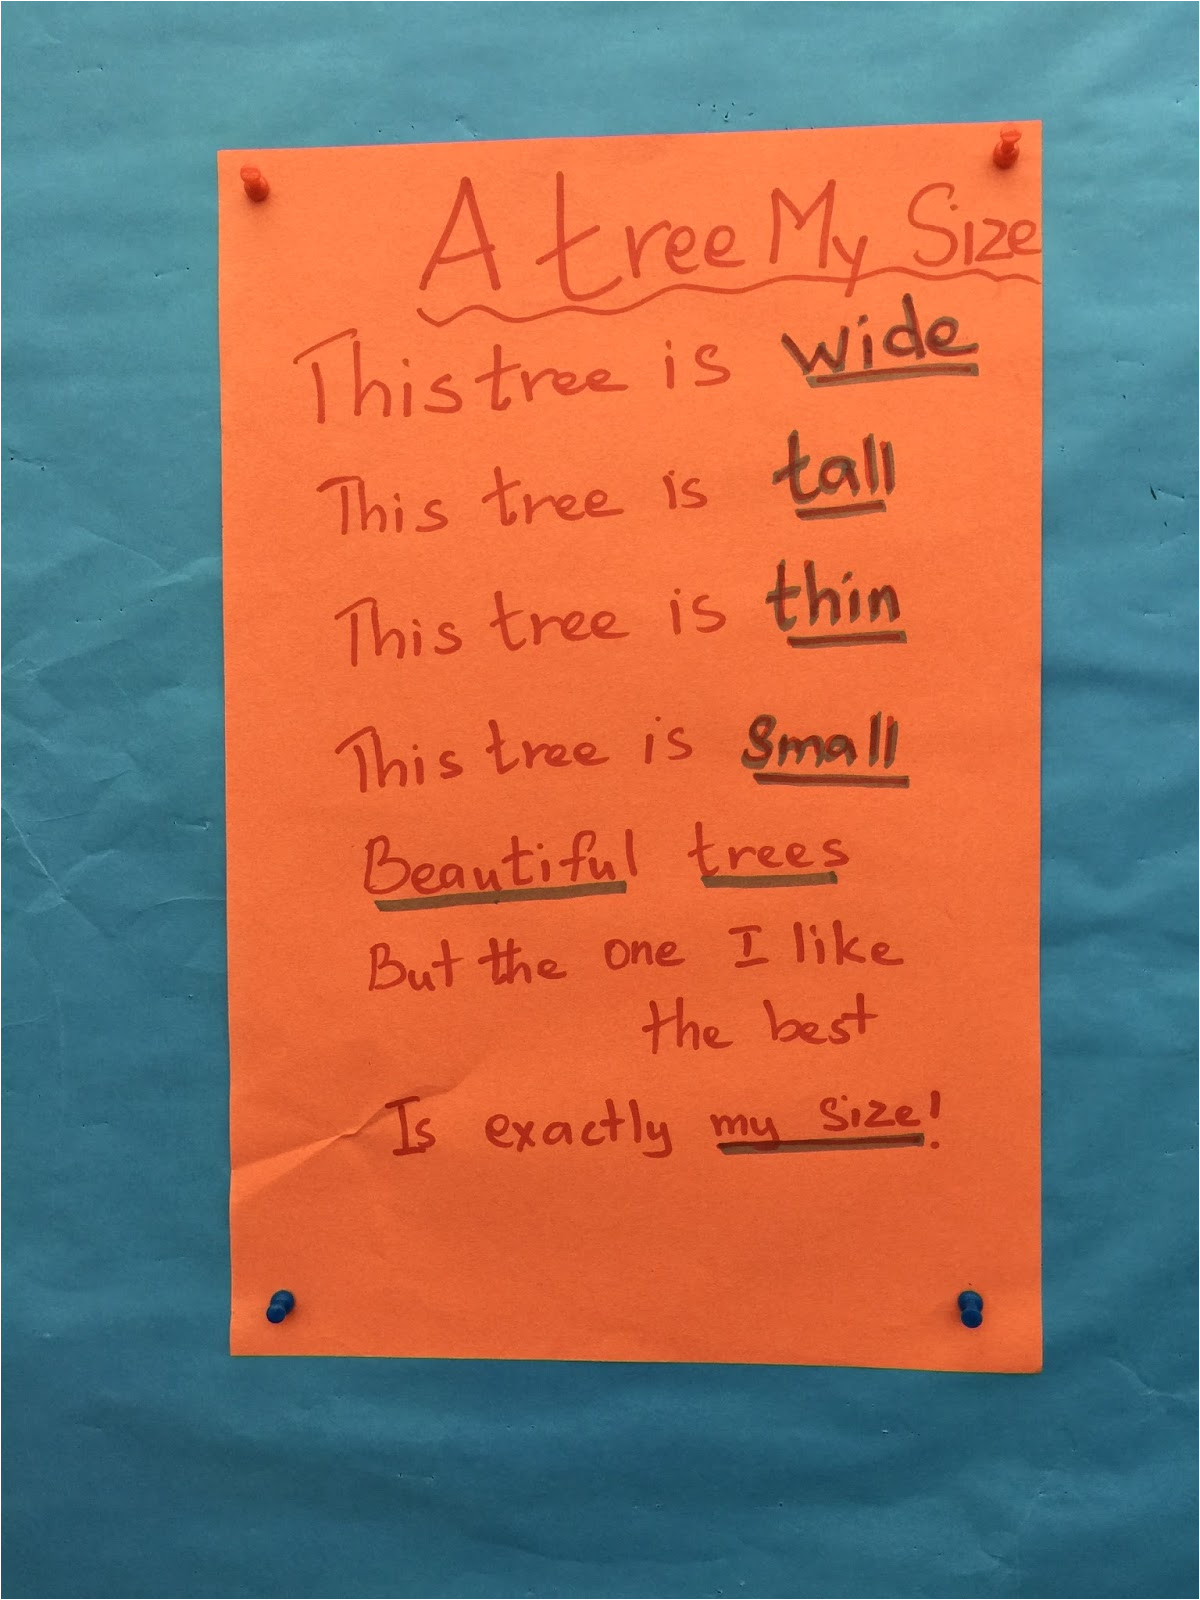 A tree My Size
This tree is wide
This tree is tall
This tree is thin
This tree is small
Beautiful trees
But the one I like
the best
Is exactly my size!